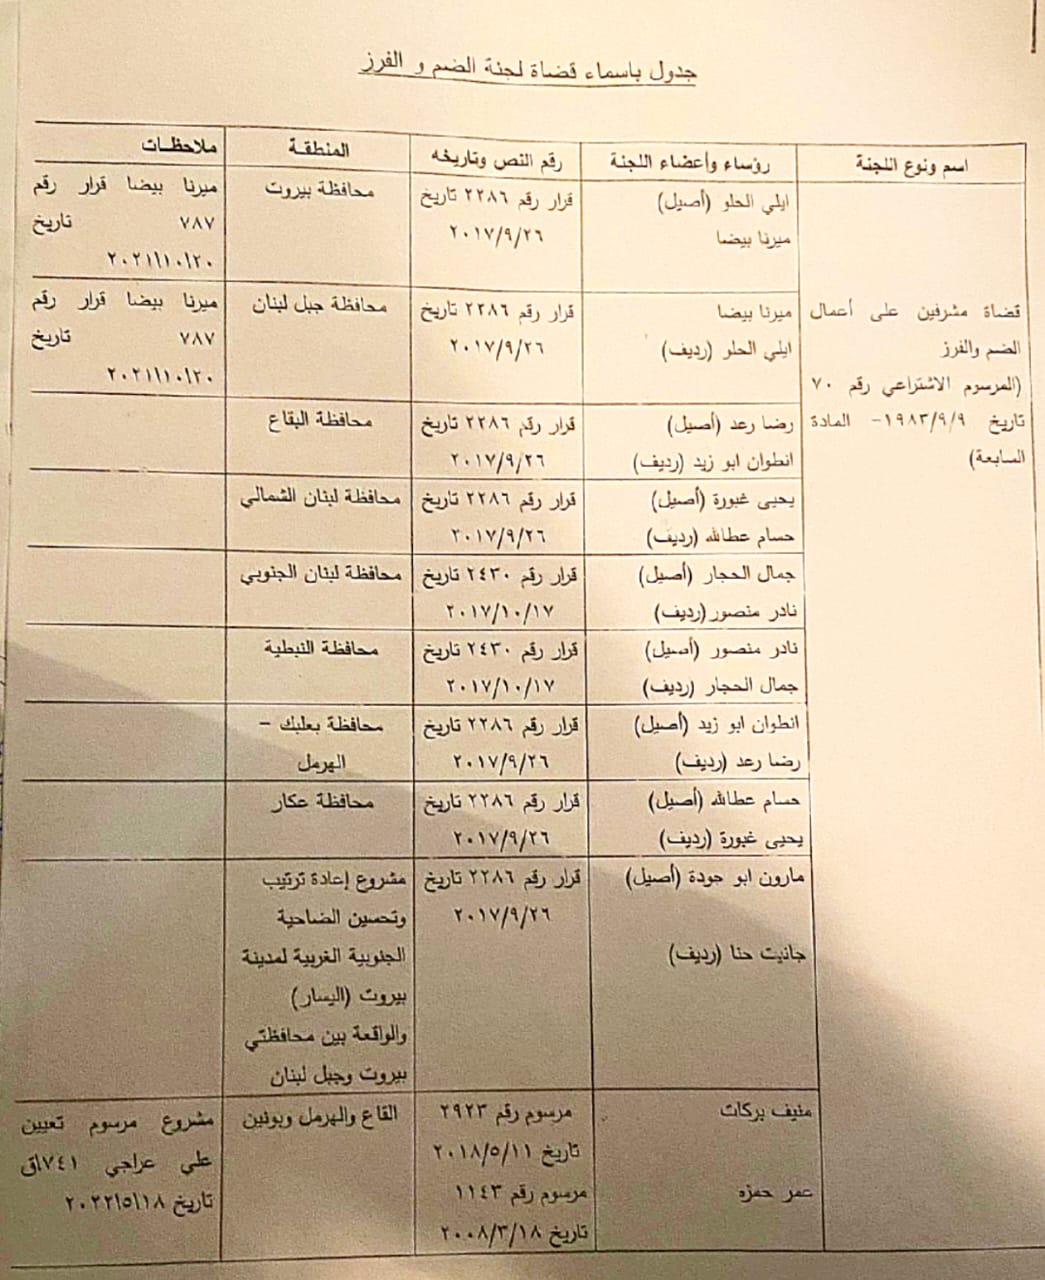 جدول باسماء قضاة لجنة الضم و الفرز
اسم ونوع اللجنة
رؤساء وأعضاء اللجنة
رقم النص وتاريخه
المنطقة
ملاحظات
قضاة مشرفين على أعمال
الضم والفرز
(المرسوم الاشتراعي رقم ٧٠
تاريخ ١٩٨٣/٩/٩- المادة
السابعة)
ايلي الحلو (أصيل)
ميرنا بيضا
قرار رقم ٢٢٨٦ تاريخ
٢٠١٧/٩/٢٦
محافظة بيروت
ميرنا بيضا قرار رقم
٧٨٧ تاريخ
٢٠٢١\١٠\٢٠
ميرنا بيضا
ايلي الحلو (رديف)
قرار رقم ٢٢٨٦ تاريخ
٢٠١٧/٩/٢٦
محافظة جبل لبنان
ميرنا بيضا قرار رقم
٧٨٧ تاريخ
٢٠٢١\١٠\٢٠
رضا رعد (أصيل)
انطوان ابو زيد (رديف)
قرار رقم ٢٢٨٦ تاريخ
٢٠١٧/٩/٢٦
محافظة البقاع
يحيى غبورة (أصيل)
حسام عطالله (رديف)
قرار رقم ٢٢٨٦ تاريخ
٢٠١٧/٩/٢٦
محافظة لبنان الشمالي
جمال الحجار (أصيل)
نادر منصور (رديف)
قرار رقم ٢٤٣٠ تاريخ
٢٠١٧/١٠/١٧
محافظة لبنان الجنوبي
نادر منصور (أصيل)
جمال الحجار (رديف)
قرار رقم ٢٤٣٠ تاريخ
٢٠١٧/١٠/١٧
محافظة النبطية
انطوان ابو زيد (أصيل)
رضا رعد (رديف)
قرار رقم ٢٢٨٦ تاريخ
٢٠١٧/٩/٢٦
محافظة بعلبك –
الهرمل
حسام عطالله (أصيل)
يحيى غبورة (رديف)
قرار رقم ٢٢٨٦ تاريخ
٢٠١٧/٩/٢٦
محافظة عكار
مارون ابو جودة (أصيل)
جانيت حنا (رديف)
قرار رقم ٢٢٨٦ تاريخ
٢٠١٧/٩/٢٦
مشروع إعادة ترتيب
وتحسين الضاحية
الجنوبية الغربية لمدينة
بيروت (اليسار)
والواقعة بين محافظتي
بيروت وجبل لبنان
منيف بركات
عمر حمزه
مرسوم رقم ٢٩٢٣
تاريخ ٢٠١٨/٥/١١
مرسوم رقم ١١٤٣
تاريخ ٢٠٠٨/٣/١٨
القاع والهرمل ويونين
مشروع مرسوم تعيين
علي عراجي ٧٤١\ق
تاريخ ٢٠٢٢\٥\١٨